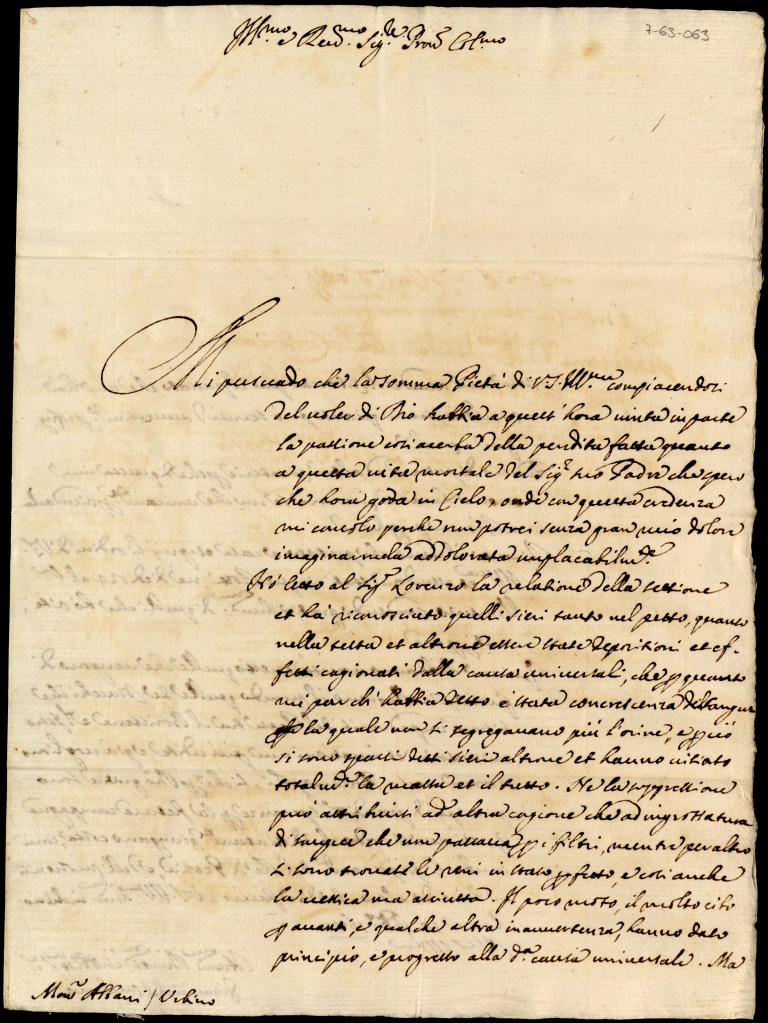 7-63-063
Ill.mo e Reu.mo Sig.re Pron Col.mo
Mi persuado che la somma Pietà di V.S. Ill.ma compiacendosi
del uoler di Dio habbia a quest'hora uinta in parte
la passione cosi acerba della perdita fatta quanto
a questa uita mortale del Sig.r suo Padre che spero
che hora goda in Cielo, onde con questa credenza
mi consolo perche non potrei senza gran mio dolore
imaginarmela addolorata implacabilm.te
Hò letto al Sig.r Lorenzo la relatione della settione
et hà riconosciuto quelli sieri tanto nel petto, quanto
nella testa et altroue essere state depositioni et ef-
fetti cagionati dalla causa uniuersale, che p quanto
mi par ch'habbia detto è stata concrescenza di sangue
p la quale non si segregauano più l'orine, e p ciò
si sono sparsi detti sieri altroue et hanno uitiato
totalm.te la massa et il tutto. Ne la soppressione
può attribuirsi ad altra cagione che ad ingrossatura
di sangue che non passaua p i filtri, mentre per altro
si sono trouate le reni in stato pfetto, e cosi anche
la uessica ma asciutta. Il poco moto, il molto cibo
p auanti, e qualche altra inauuertenza, hanno dato
principio, e progresso alla d.a causa uniuersale. Ma
Mons.r Albani / Urbino